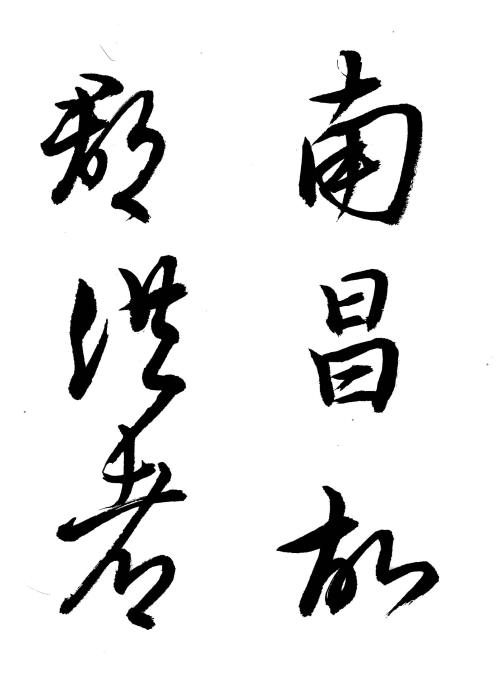 南昌故
郡洪都